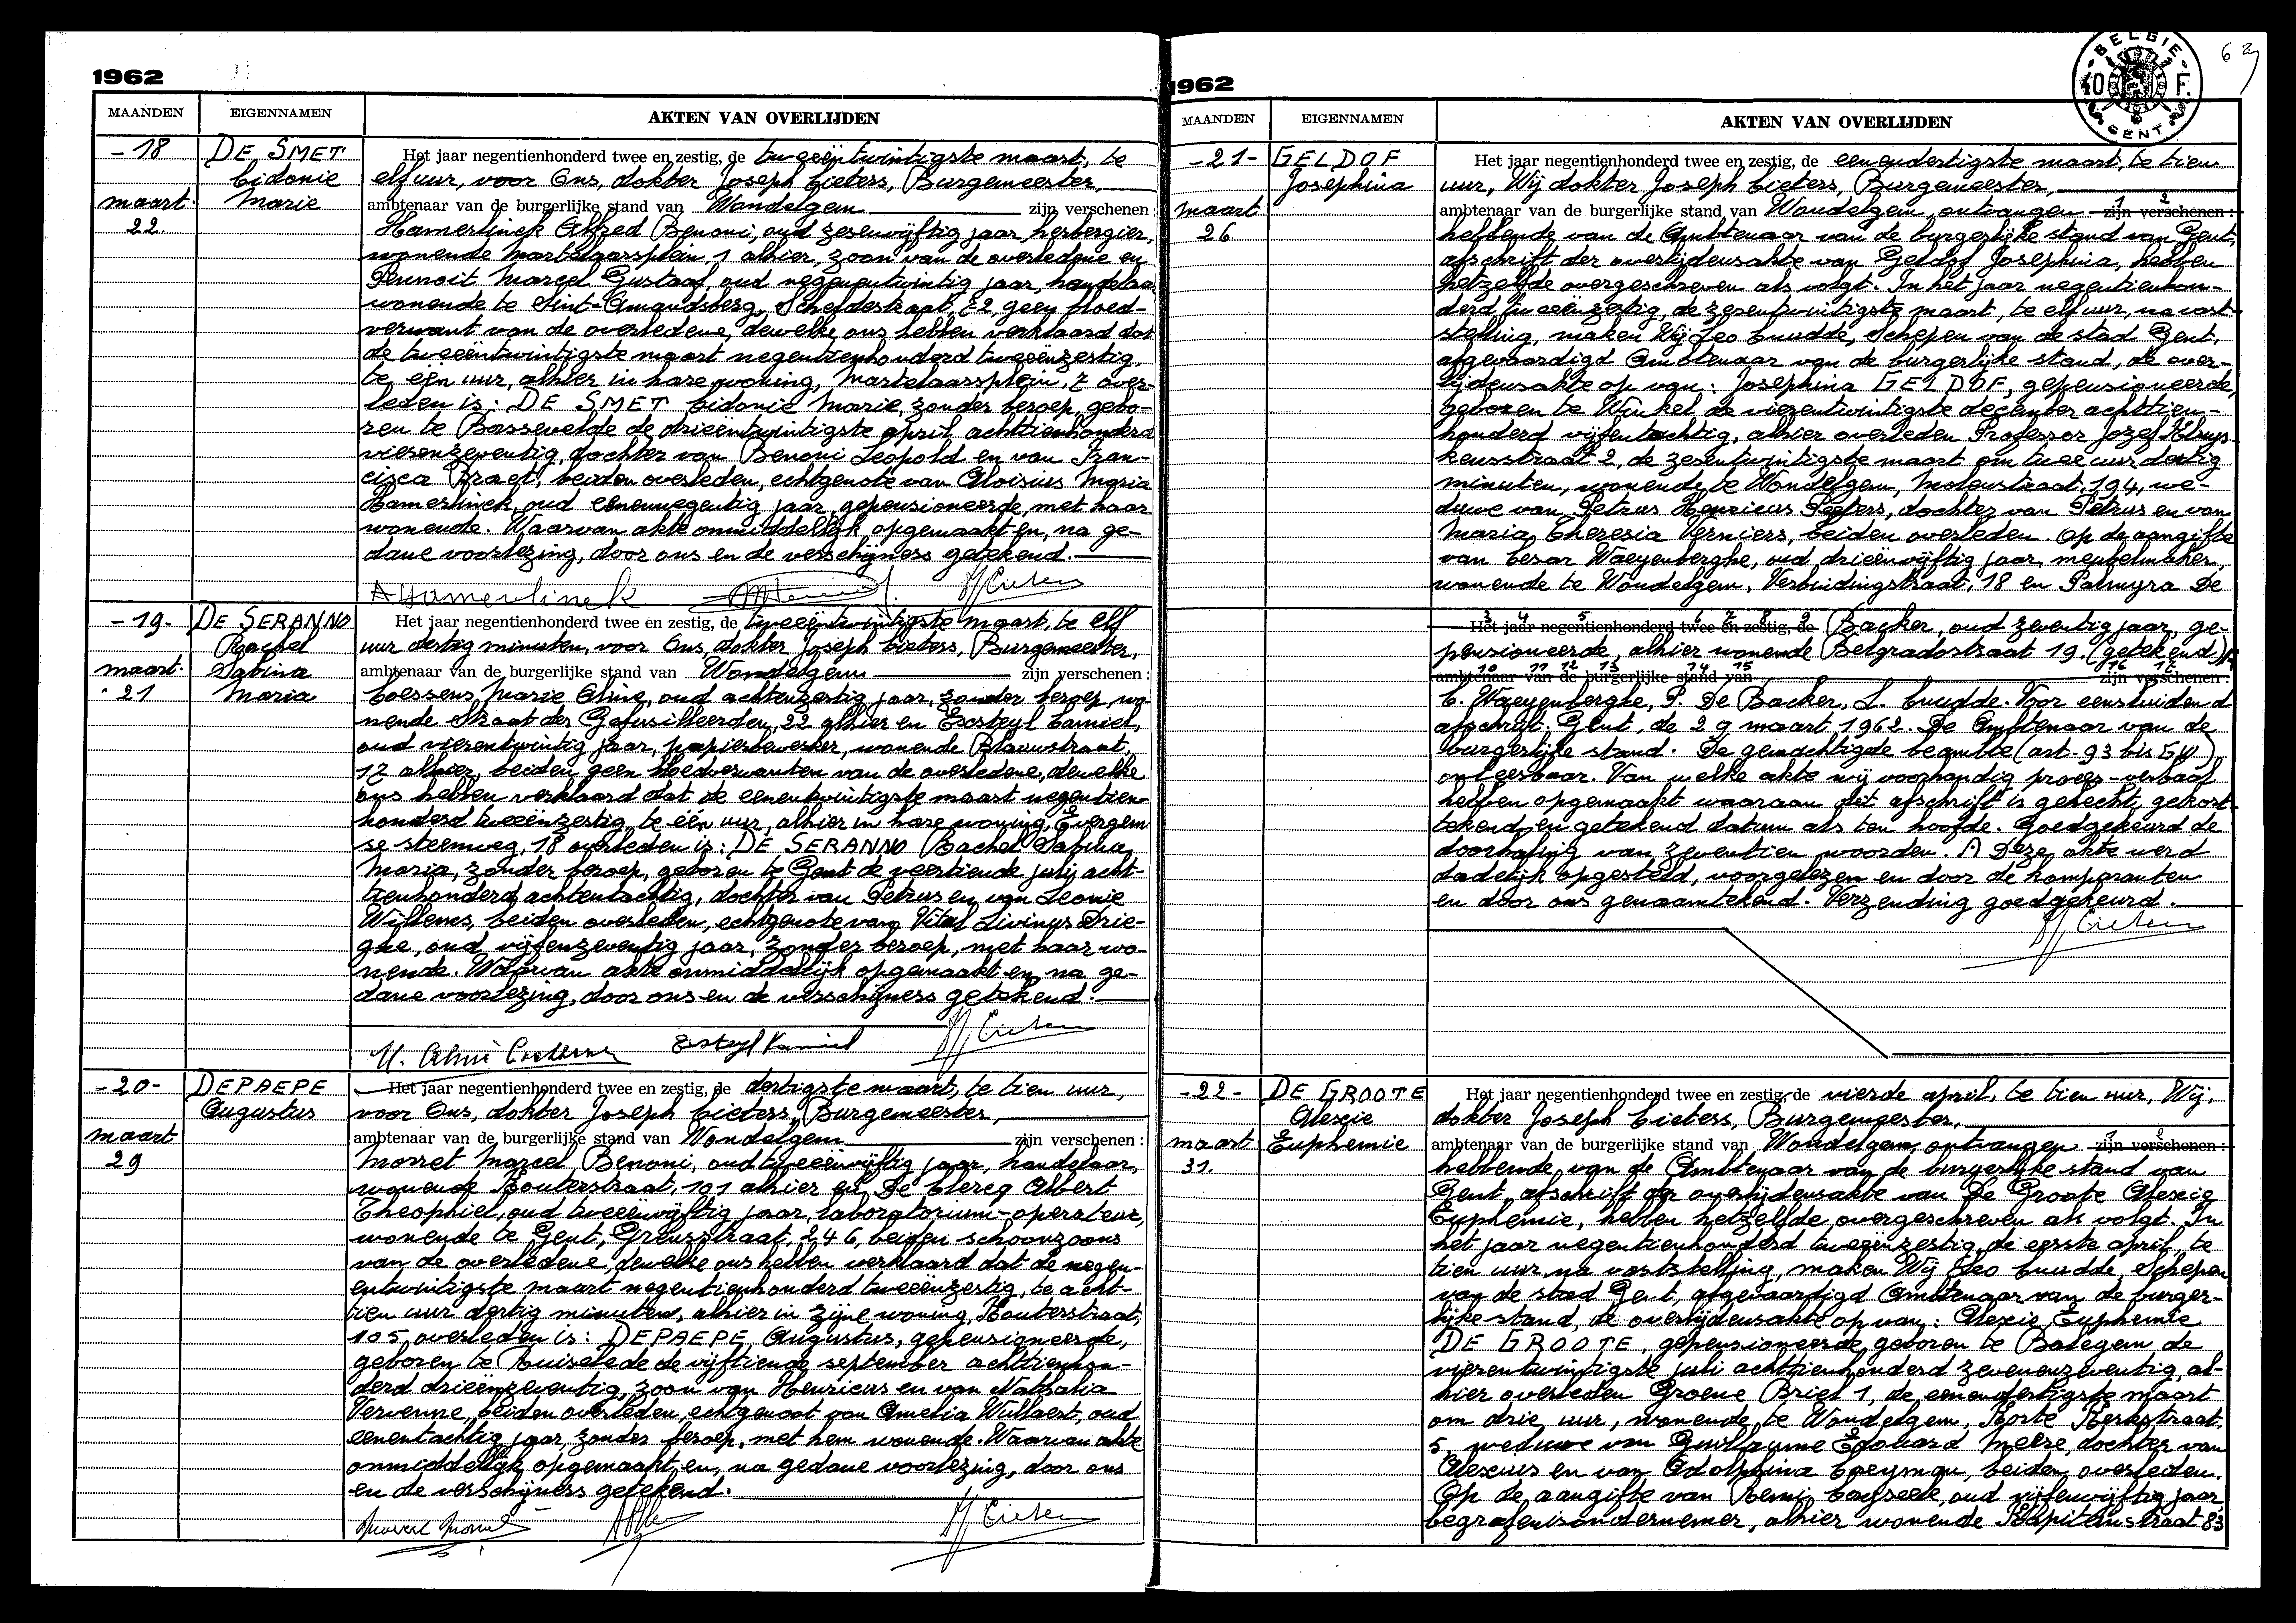 1962
MAANDEN EIGENNAMEN AKTEN VAN OVERLIJDEN
-18 DE SMET Het jaar negentienhonderd twee en zestig, de tweeëntwintigste maart, te
Cidonie elf uur, voor Ons, dokter Joseph Cieters, Burgemeester,
maart Marie ambtenaar van de burgerlijke stand van Wondelgem zijn verschenen :
22. Hamerlinck Alfred Benoni, oud zesenvijftig jaar, herbergier,
wonende Martelaarsplein, 1 alhier, zoon van de overledene en
Pennoit Marcel Gustaaf, oud negenentwintig jaar, handelaar
wonende te Sint-Amandsberg, Scheldestraat, 82, geen bloed-
verwant van de overledene, dewelke ons hebben verklaard dat
de tweeëntwintigste maart negentienhonderd tweeënzestig,
te één uur, alhier in hare woning, Martelaarsplein, 7 over-
leden is: DE SMET Cidonie Marie, zonder beroep, gebo-
ren te Bassevelde de drieëntwintigste april achttienhonderd
vierenzeventig, dochter van Benoni Leopold en van Fran-
cisca Braet, beiden overleden, echtgenote van Aloisius Maria
Hamerlinck, oud eenennegentig jaar, gepensioneerde, met haar
wonende. Waarvan akte onmiddellijk opgemaakt en, na ge-
dane voorlezing, door ons en de verschijners getekend.
A Hamerlinck J Cieters
-19- DE SERANNO Het jaar negentienhonderd twee en zestig, de tweeëntwintigste maart, te elf
Rachel uur dertig minuten, voor Ons, dokter Joseph Cieters, Burgemeester,
maart Sabina ambtenaar van de burgerlijke stand van Wondelgem zijn verschenen :
21 Maria Coessens Marie Aline, oud achtenzestig jaar, zonder beroep, wo-
nende Straat der Gefusilleerden, 22 alhier en Eecsteyl Camiel,
oud vierentwintig jaar, papierbewerker, wonende Blauwstraat,
17 alhier, beiden geen bloedverwanten van de overledene, dewelke
ons hebben verklaard dat de eenentwintigste maart negentien-
honderd tweeënzestig, te één uur, alhier in hare woning, Evergem
se steenweg, 18 overleden is: DE SERANNO Rachel Sabina
Maria, zonder beroep, geboren te Gent de veertiende juli acht-
tienhonderd achtentachtig, dochter van Petrus en van Leonie
Willems, beiden overleden, echtgenote van Vital Livinus Drie-
ghe, oud vijfenzeventig jaar, zonder beroep, met haar wo-
nende. Waarvan akte onmiddellijk opgemaakt en, na ge-
dane voorlezing, door ons en de verschijners getekend.
J Cieters
-20- DEPAEPE Het jaar negentienhonderd twee en zestig, de dertigste maart, te tien uur,
Augustus voor Ons, dokter Joseph Cieters, Burgemeester,
maart ambtenaar van de burgerlijke stand van Wondelgem zijn verschenen :
29 Monset Marcel Benoni, oud tweeënvijftig jaar, handelaar,
wonende Houterstraat, 101 alhier en De Clercq Albert
Theophiel, oud tweeënvijftig jaar, laboratorium-operateur,
wonende te Gent, Grensstraat, 246, beiden schoonzoons
van de overledene, dewelke ons hebben verklaard dat de negen-
entwintigste maart negentienhonderd tweeënzestig, te acht-
tien uur dertig minuten, alhier in zijne woning, Houterstraat,
105, overleden is: DEPAEPE Augustus, gepensioneerde,
geboren te Ruiselede de vijftiende september achttienhon-
derd drieënzeventig, zoon van Henricus en van Nathalia
Vervenne, beiden overleden, echtgenoot van Amelia Willaert, oud
eenentachtig jaar, zonder beroep, met hem wonende. Waarvan akte
onmiddellijk opgemaakt en, na gedane voorlezing, door ons
en de verschijners getekend.
J Cieters
1962
BELGIE 40 F. GENT
MAANDEN EIGENNAMEN AKTEN VAN OVERLIJDEN
-21- GELDOF Het jaar negentienhonderd twee en zestig, de eenendertigste maart, te tien
Josephina uur, Wij dokter Joseph Cieters, Burgemeester,
maart ambtenaar van de burgerlijke stand van Wondelgem, ontvangen 1 2 zijn verschenen :
26 hebbende van de Ambtenaar van de burgerlijke stand van Gent,
afschrift der overlijdensakte van Geldof Josephina, hebben
hetzelfde overgeschreven als volgt. In het jaar negentienhon-
derd tweeënzestig, de zesentwintigste maart, te elf uur, na vast-
stelling, maken Wij Leo Cnudde, Schepen van de stad Gent,
afgevaardigd Ambtenaar van de burgerlijke stand, de over-
lijdensakte op van: Josephina GELDOF, gepensioneerde,
geboren te Winkel de vierentwintigste december achttien-
honderd vijfentachtig, alhier overleden Professor Jozef Kluys-
kensstraat 2, de zesentwintigste maart om twee uur dertig
minuten, wonende te Wondelgem, Molenstraat, 194, we-
duwe van Petrus Henricus Peeters, dochter van Petrus en van
Maria Theresia Verniers, beiden overleden. Op de aangifte
van Cesar Waeyenberghe, oud drieënvijftig jaar, meubelmaker,
wonende te Wondelgem, Verbindingstraat, 18 en Palmyra De
3 4 5 6 7 8 9
Het jaar negentienhonderd twee en zestig, de Backer, oud zeventig jaar, ge-
pensioneerde, alhier wonende Belgradostraat 19. (getekend)
10 11 12 13 14 15 16 17
ambtenaar van de burgerlijke stand van zijn verschenen :
C. Waeyenberghe, P. De Backer, L. Cnudde. Voor eensluidend
afschrift. Gent, de 29 maart 1962. De Ambtenaar van de
burgerlijke stand. De gemachtigde beambte (art. 93 bis GW)
onleesbaar. Van welke akte wij voorhandig proces-verbaal
hebben opgemaakt waaraan dit afschrift is gehecht, gekort-
tekend, en getekend datum als ten hoofde. Goedgekeurd de
doorhaling van zeventien woorden. A Deze akte werd
dadelijk opgesteld, voorgelezen en door de komparanten
en door ons genaamtekend. Verzending goedgekeurd.
J Cieters
-22- DE GROOTE Het jaar negentienhonderd twee en zestig, de vierde april, te tien uur, Wij,
Alexie dokter Joseph Cieters, Burgemeester,
maart Euphemie ambtenaar van de burgerlijke stand van Wondelgem, ontvangen 1 2 zijn verschenen :
31. hebbende van de Ambtenaar van de burgerlijke stand van
Gent, afschrift der overlijdensakte van De Groote Alexie
Euphemie, hebben hetzelfde overgeschreven als volgt. In
het jaar negentienhonderd tweeënzestig, de eerste april, te
tien uur, na vaststelling, maken Wij Leo Cnudde, Schepen
van de stad Gent, afgevaardigd Ambtenaar van de burger-
lijke stand, de overlijdensakte op van: Alexie Euphemie
DE GROOTE, gepensioneerde, geboren te Balegem de
vierentwintigste juli achttienhonderd zevenenzeventig, al-
hier overleden Groene Briel 1, de eenendertigste maart
om drie uur, wonende te Wondelgem, Korte Kerkstraat,
5, weduwe van Guillaume Edouard Meire, dochter van
Alexius en van Adolphina Coeyman, beiden overleden.
Op de aangifte van Remi Cayseele, oud vijfenvijftig jaar
begrafenisondernemer, alhier wonende Kapiteinstraat 83